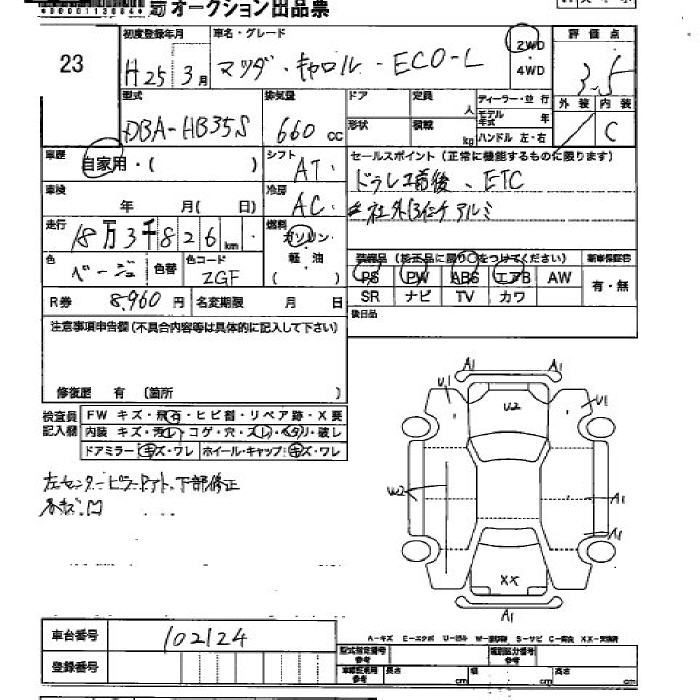 *00001130884*
オークション出品票
23
初度登録年月
車名・グレード
H25 3月
マツダ・キャロル・ECO-L
2WD
4WD
評価点
3.5
型式
排気量
ドア
定員
人
ディーラー・並行
モデル年式 年
外装 内装
DBA-HB35S
660 cc
形状
積載
kg
ハンドル 左・右
/ C
車歴
自家用・( )
シフト
AT
セールスポイント(正常に機能するものに限ります)
ドラレコ前後、ETC
車検
年 月( 日)
冷房
AC
社外13インチアルミ
走行
18万3千826km
燃料
ガソリン
軽油
装備品(純正品に限り○をつけてください)
新車保証書
色
ベージュ
色替
色コード
ZGF
PS PW ABS エアB AW
有・無
R券
8,960円
名変期限 月 日
SR ナビ TV カワ
後日品
注意事項申告欄(不具合内容等は具体的に記入して下さい)
修復歴 有 〔箇所 〕
検査員記入欄
FW キズ・飛石・ヒビ割・リペア跡・X要
内装 キズ・汚れ・コゲ・穴・スレ・ヘタリ・破レ
ドアミラー キズ・ワレ
ホイール・キャップ キズ・ワレ
左センターピラー下部修正
A1
A1
U1
U2
U1
W2
A1
A1
XX
A1
車台番号
102124
登録番号
A-キズ E-エクボ U-凹み W-波修跡 S-サビ C-腐食 XX-交換済
型式指定番号
参考
類別区分番号
参考
長さ cm
幅 cm
高さ cm